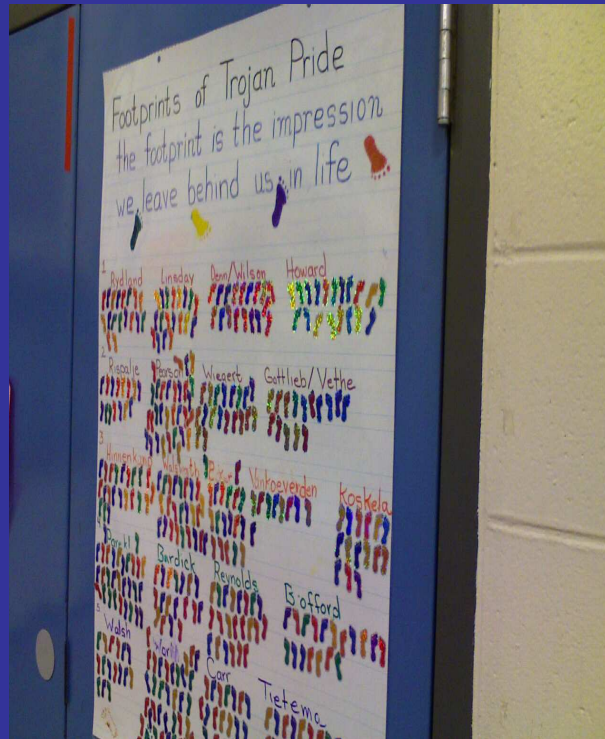 Footprints of Trojan Pride
the footprint is the impression
we leave behind us in life
1 Rydland Linsday Denn/Wilson Howard
2 Rispalje Pearson Wiegert Gottlieb/Vethe
3 Vankoeverden Koskela
Burdick Reynolds Biofford
5 Walsh Carr Tietema